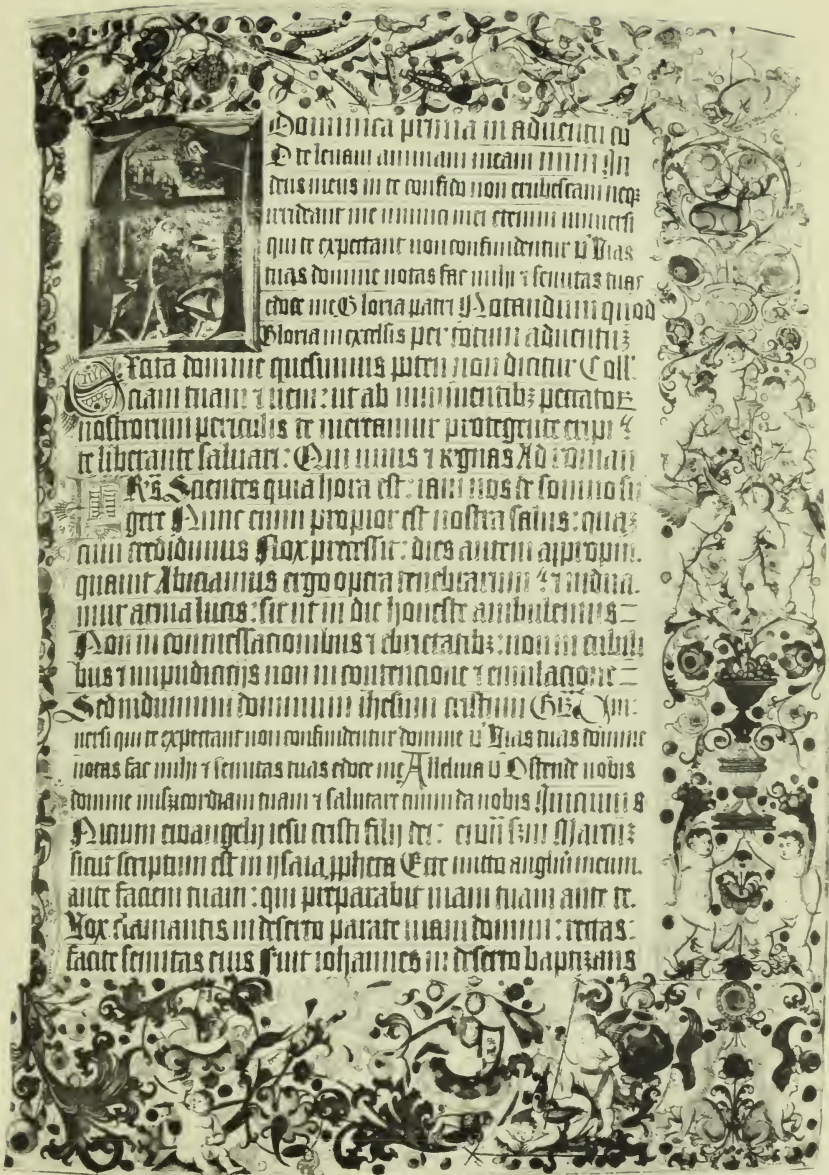 Dominica prima in aduentu do
D te leuaui animam meam
deus meus in te confido non erubescam neqꝫ
irrideant me inimici mei etenim uniuersi
qui te expectant non confundentur v̄ Uias
tuas domine notas fac mihi ⁊ semitas tuas
edoce me Gloria patri Notandum quod
Gloria in excelsis per totum aduentuꝫ
Excita domine quesumus non dicitur Coll'
ciam tuam ⁊ ueni: ut ab imminentibꝫ peccatoꝝ
nostrorum periculis te mereamur protegente eripi ⁊
te liberante saluari: Qui uiuis ⁊ regnas Ad roman
Scientes quia hora est: iam nos de somno sur
gere Nunc enim propior est nostra salus: quaꝫ
cum credidimus Nox precessit: dies autem appropin.
quauit Abiciamus ergo opera tenebrarum ⁊ indua.
mur arma lucis: sicut in die honeste ambulemus
Non in comessacionibus ⁊ ebrietatibꝫ: non in cubili
bus ⁊ impudicitijs non in contencione ⁊ emulacione
Sed induimini dominum ihesum cristum Uni
uersi qui te expectant non confundentur domine v̄ Uias tuas domine
notas fac mihi ⁊ semitas tuas edoce me Alleluia v̄ Ostende nobis
domine mis̄icordiam tuam ⁊ salutare tuum da nobis Inicium s
Nicium ewangelij iesu cristi filij dei: Marcuꝫ
sicut scriptum est in ysaia ꝓpheta Ecce mitto anglū meum.
ante faciem tuam: qui preparabit uiam tuam ante te.
Vox clamantis in deserto parate uiam domini: rectas:
facite semitas eius Fuit iohannes in deserto baptizans